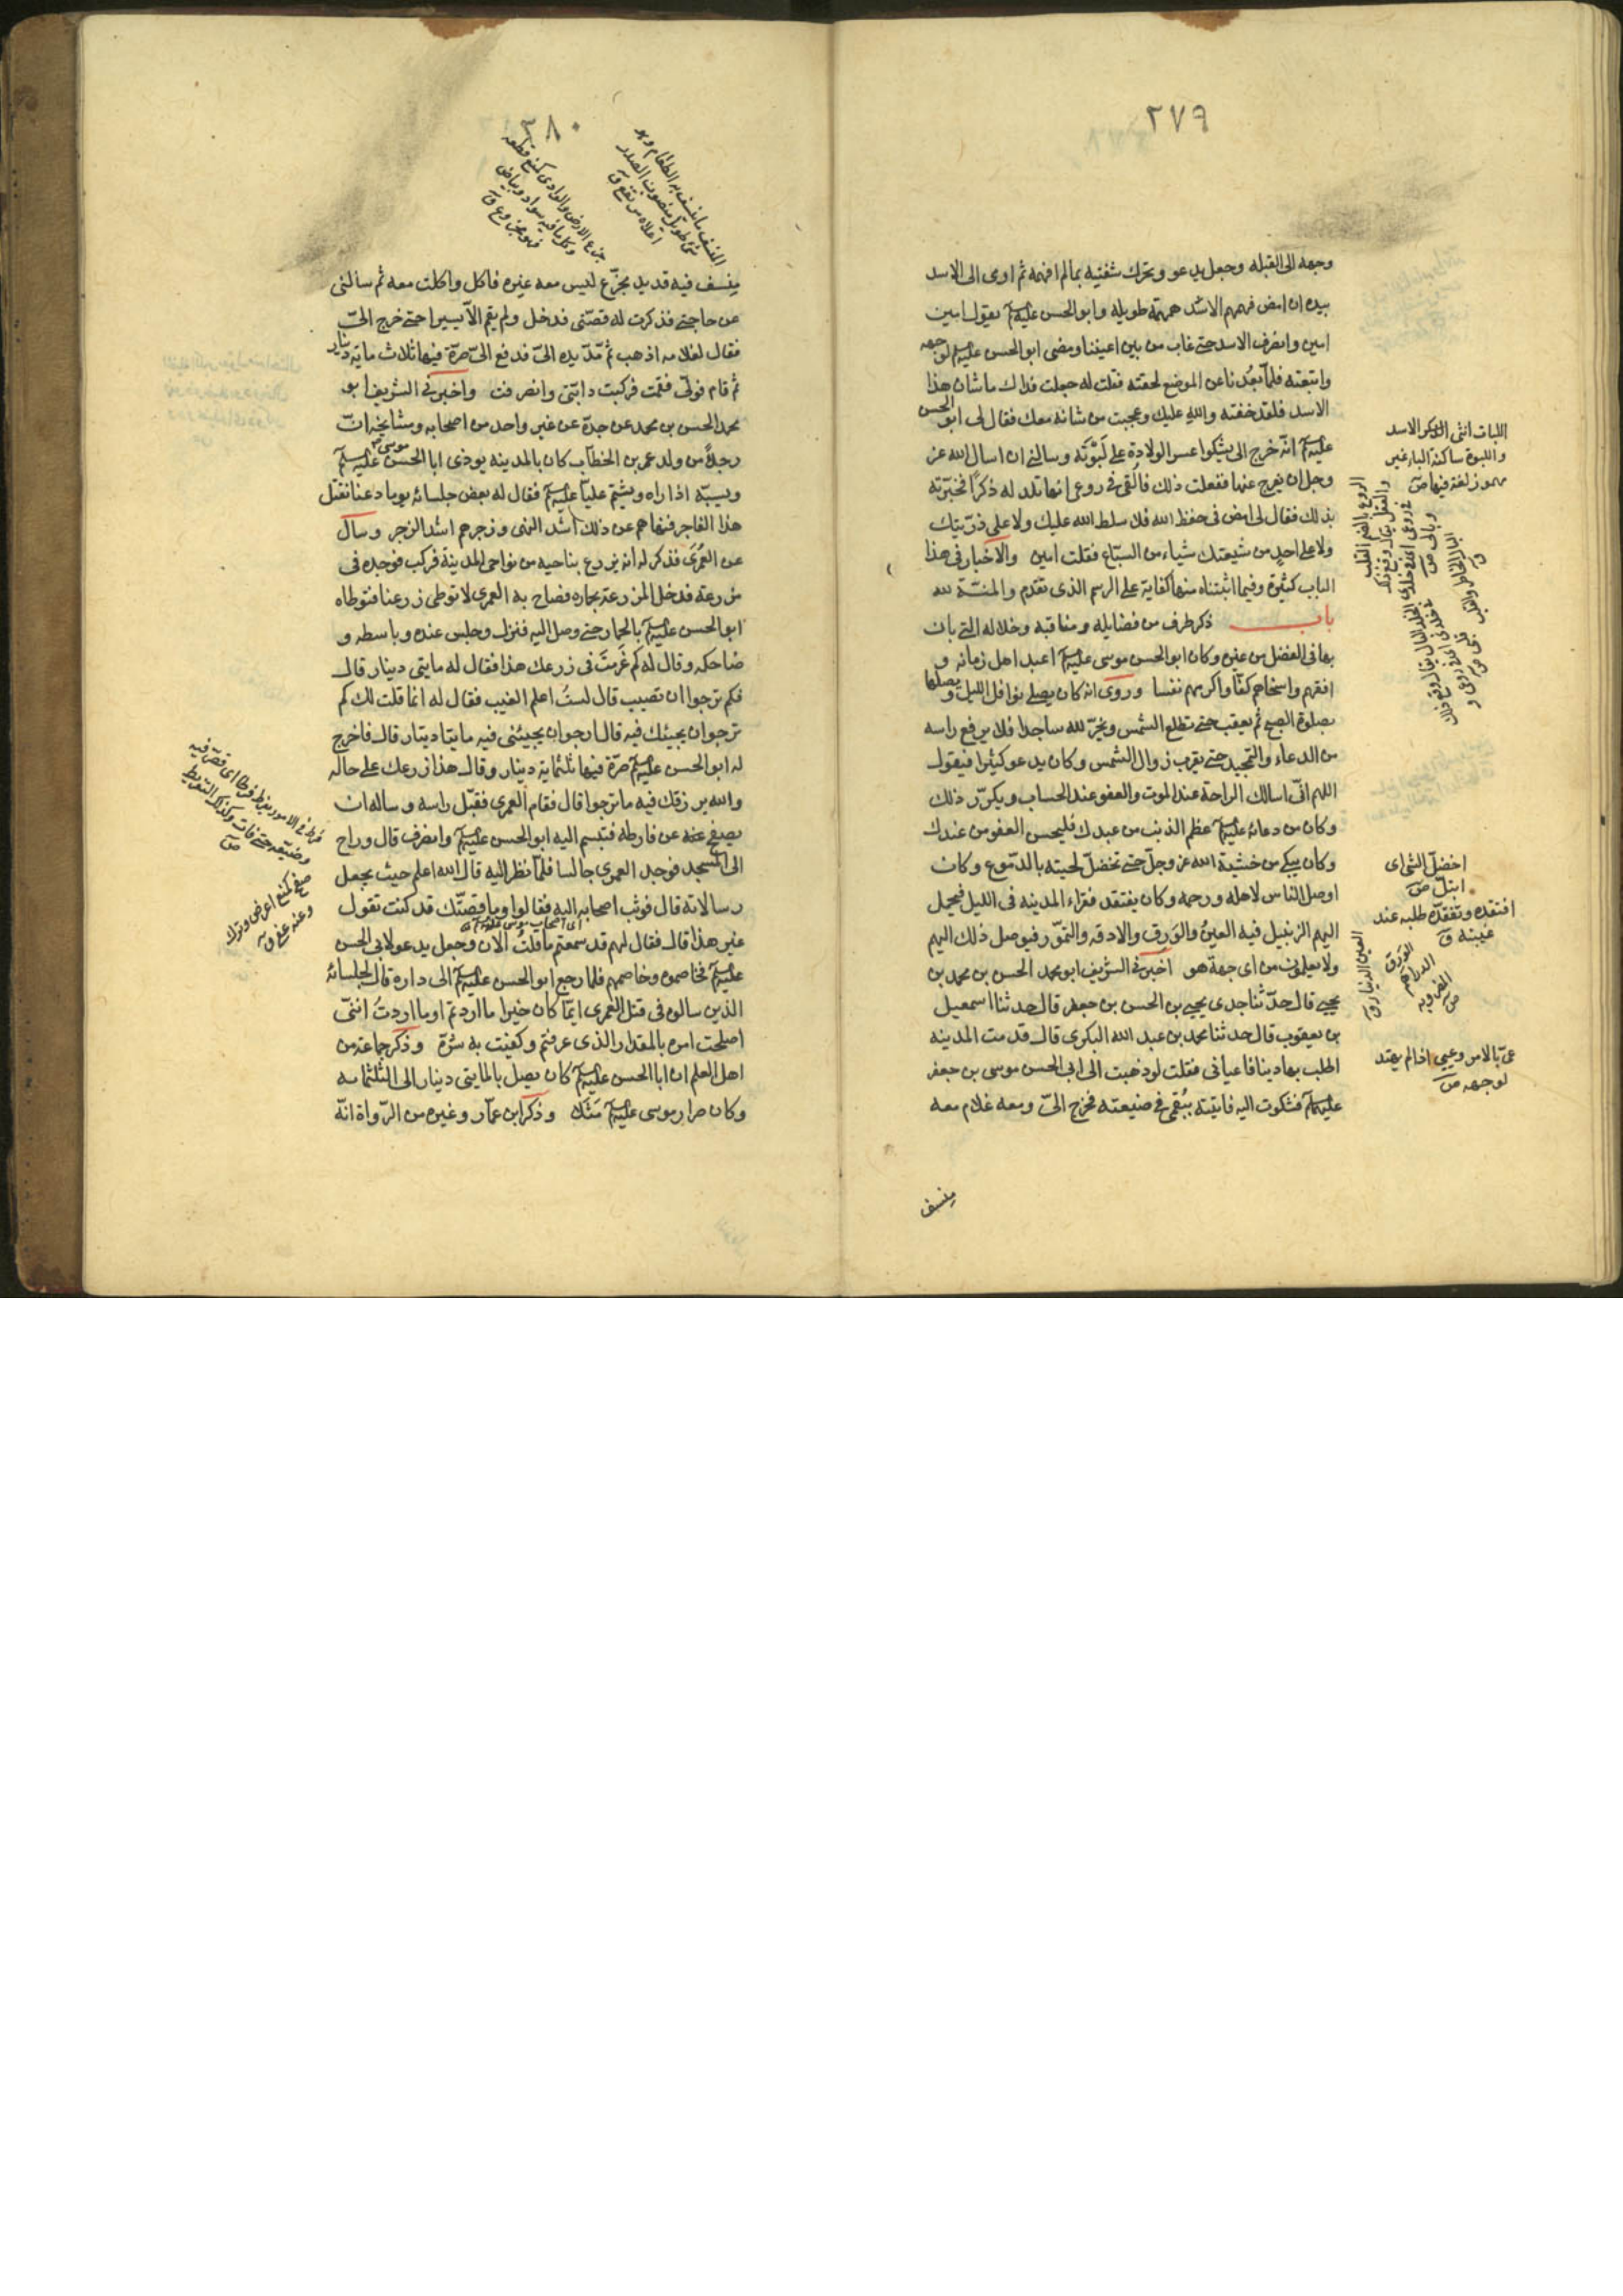 ٢٧٩
وجهه الى القبله وجعل يدعو ويحرك شفتيه بمالم افهمه ثم اومى الى الاسد
بيده ان امض فهمهم الاسد همهمة طويله وابو الحسن عليه السلم يقول امين
امين وانصرف الاسد حتى غاب من بين اعيننا ومضى ابو الحسن عليه السلم لوجهه
واتبعته فلما بعدنا عن الموضع لحقته فقلت له جعلت فداك ماشان هذا
الاسد فلقد خفته والله عليك وعجبت من شانه معك فقال لى ابو الحسن
عليه السلم انّه خرج الى يشكوا عسر الولادة على لَبُوْته وسالنى ان اسال الله عز
وجل ان يفرج عنها ففعلت ذلك فاُلقى فى روعى انها تلد له ذكرًا فخبّرته
بذلك فقال لى امض فى حفظ الله فلا سلط الله عليك ولا على ذرّيتك
ولا على احدٍ من شيعتك شياء من السبّاع فقلت امين والاخبار فى هذا
الباب كثيرة وفيما اثبتناه منها كفاية على الرسم الذى تقدم والمنّة لله
باب ذكر طرف من فضايله ومناقبه وخلاله التى بان
بها فى الفضل من غيره وكان ابو الحسن موسى عليه السلم اعبد اهل زمانه و
افقههم واسخاهم كفّا واكرمهم نفسا وروى انه كان يصلى نوافل الليل ويصلها
بصلوة الصبح ثم يعقب حتى تطلع الشمس ويخرّ لله ساجدا فلا يرفع راسه
من الدعاء والتمجيد حتى يقرب زوال الشمس وكان يدعو كثيرا فيقول
اللهم انّى اسالك الراحة عند الموت والعفو عند الحساب ويكرّر ذلك
وكان من دعائه عليه السلم عظم الذنب من عبدك فليحسن العفو من عندك
وكان يبكى من خشية الله عز وجلّ حتى تخضلّ لحيته بالدّموع وكان
اوصل الناس لاهله ورحمه وكان يفتقد فقراء المدينه فى الليل فيحمل
اليهم الزنبيل فيه العينُ والوَرِق والادقه والتمّور فيوصل ذلك اليهم
ولا يعلمون من اى جهة هو اخبرنى الشريف ابو محمد الحسن بن محمد بن
يحيى قال حدّثنا جدى يحيى بن الحسن بن جعفر قال حدثنا اسمعيل
بن يعقوب قال حدثنا محمد بن عبد الله البكرى قال قدمت المدينه
اطلب بها دينا فاعيانى فقلت لو ذهبت الى ابى الحسن موسى بن جعفر
عليهما السلم فشكوت اليه فاتيته بنُقمى فى ضيعته فخرج الىّ ومعه غلام معه
منسف
اللبات انثى
الاسد
واللبوة ساكنة الباء غير
مهموز لغة فيها ص
اخضلّ الشئ اى
ابتلّ ص
افتقده وتفقدّه طلبه عند
غيبته ق
الورق
الدراهم
المضروبه
ص
العين الدينار ق
عىّ بالامر وعيى اذا لم يهتد
لوجهه ص
٢٨٠
المنسف ماينسف به الطعام وهو
شئ طويل منصوب الصدر
اعلاه مرتفع ق
جزع الارض والوادى كمنع قطعه
وكل ما فيه سواد وبياض
فهو مجزع ق
مِنسف فيه قديد مجزّع ليس معه غيره فاكل واكلت معه ثم سالنى
عن حاجتى فذكرت له قصّتى فدخل ولم يقم الاّ يسيرا حتى خرج الىّ
فقال لغلامه اذهب ثم مّدّ يده الىّ فدفع الىّ صرّة فيها ثلاث ماية دينار
ثم قام فولّى فقمت فركبت دابّتى وانصرفت واخبرنى الشريف ابو
محمد الحسن بن محمد عن جدّه عن غير واحد من اصحابه ومشايخه انّ
رجلاً من ولد عمر بن الخطاب كان بالمدينه يوذى ابا الحسن موسى عليه السلم
ويسبّه اذا راه ويشتم عليّا عليه السلم فقال له بعض جلسائه يوما دعنا نقتل
هذا الفاجر فنهاهم عن ذلك اشد النهى وزجرهم اشد الزجر وسال
عن العُمَرى فذكر له انه يزرع بناحيه من نواحى المدينة فركب فوجده فى
مزرعة فدخل المزرعة بحماره فصاح به العمرى لا توطى زرعنا فتوطاه
ابو الحسن عليه السلم بالحمار حتى وصل اليه فنزل وجلس عنده وباسطه و
ضاحكه وقال له كم غَرِمتَ فى زرعك هذا فقال له مايتى دينار قال
فكم ترجوا ان تصيب قال لستُ اعلم الغيب فقال له انما قلت لك كم
ترجو ان يجيئك فيه قال ارجو ان يجيئنى فيه مايتا دينار قال فاخرج
له ابو الحسن عليه السلم صرّة فيها ثلثماية دينار وقال هذا زرعك على حاله
والله يرزقك فيه ما ترجوا قال فقام العمرى فقبّل راسه وساله ان
يصفح عنه عن فارطه فتبسم اليه ابو الحسن عليه السلم وانصرف قال وراح
الى المسجد فوجد العمرى جالسا فلمّا نظر اليه قال الله اعلم حيث يجعل
رسالاته قال فوثب اصحابه اليه فقالوا وما قصتّك قد كنت تقول
غير هذا قال فقال لهم قد سمعتم ما قلتُ الان وجعل يدعو لابى الحسن
عليه السلم فخاصموه وخاصمهم فلما رجع ابو الحسن عليه السلم الى داره قال لجلسائه
الذين سالوه فى قتل العمرى ايّما كان خيرا ما اردتم او ما اردتُ اننّى
اصلحت امره بالمقدار الذى عرفتم وكفيت به شرّه وذكر جماعة من
اهل العلم ان ابا الحسن عليه السلم كان يصل بالمايتى دينار الى الثلثمايه
وكان صرار موسى عليه السلم مَثَلا وذكر ابن عمّار وغيره من الرّواة انّه
فرط فى الامر يفرط فرطا اى قصّر فيه
وضيّعه حتى فات وكذلك التفريط
ص
صفح كمنع اعرض وترك
وعنه عفى ق